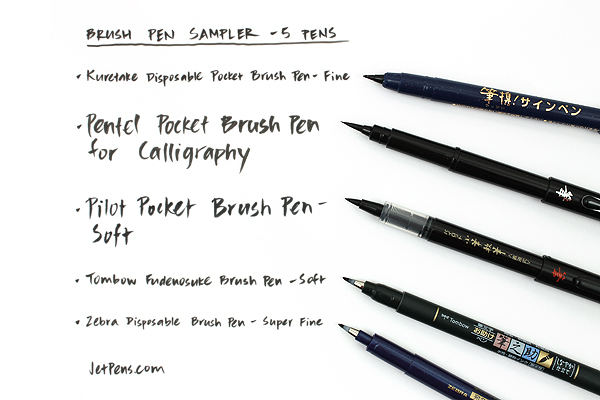 BRUSH PEN SAMPLER - 5 PENS
• Kuretake Disposable Pocket Brush Pen - Fine
• Pentel Pocket Brush Pen
for Calligraphy
• Pilot Pocket Brush Pen -
Soft
• Tombow Fudenosuke Brush Pen - Soft
• Zebra Disposable Brush Pen - Super Fine
JetPens.com
筆撰! サインペン
Tombow
筆之助
ZEBRA